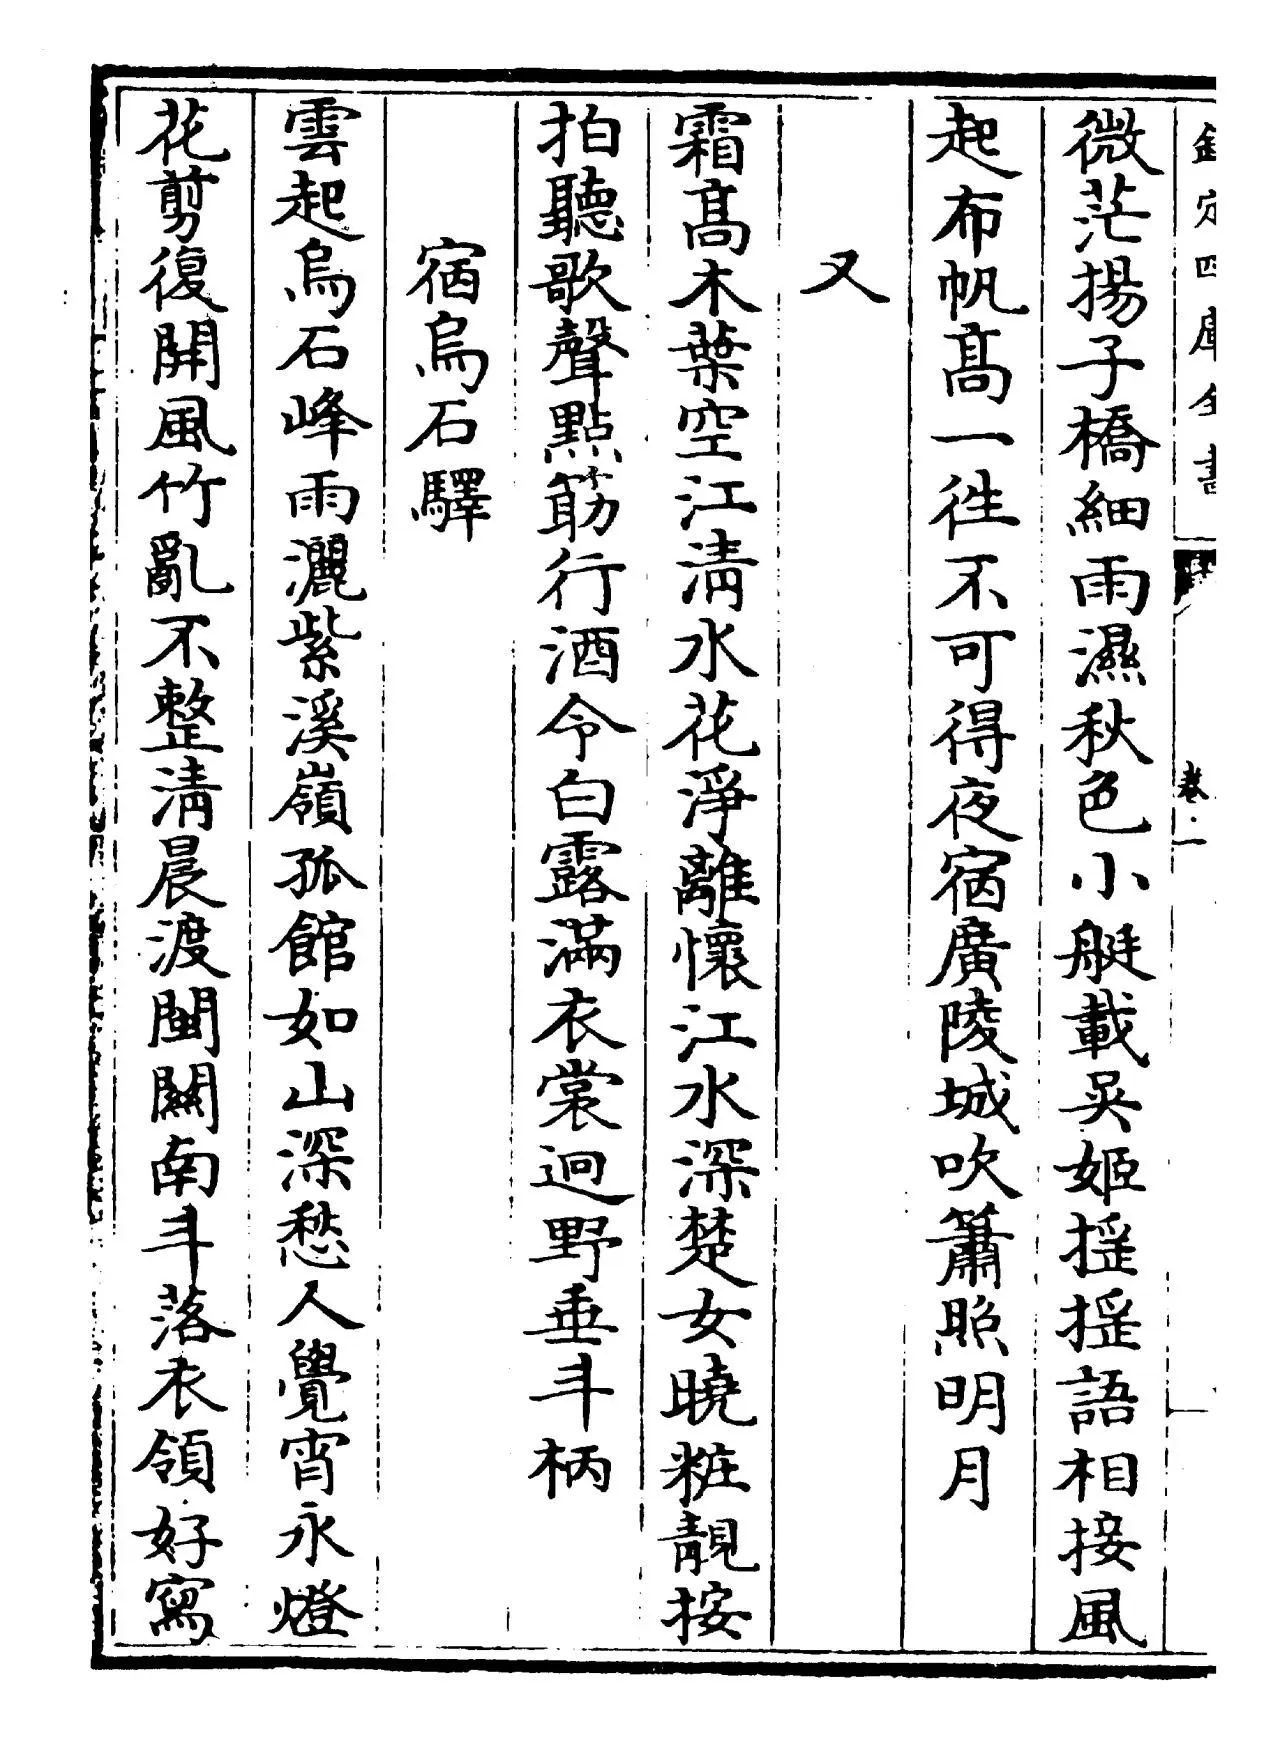 欽定四庫全書
卷一
微茫揚子橋細雨濕秋色小艇載吳姬揺揺語相接風
起布帆髙一徃不可得夜宿廣陵城吹簫照明月
又
霜髙木葉空江清水花淨離懷江水深楚女曉粧靚按
拍聽歌聲點筯行酒令白露滿衣裳迥野垂斗柄
宿烏石驛
雲起烏石峰雨灑紫溪嶺孤館如山深愁人覺宵永燈
花剪復開風竹亂不整清晨渡閩闗南斗落衣領好寫